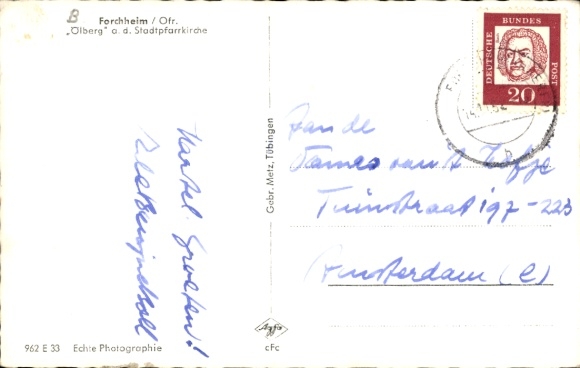 B
Forchheim / Ofr.
„Ölberg" a. d. Stadtpfarrkirche
Hartel. Groeten!
Gebr. Metz, Tübingen
DEUTSCHE BUNDES POST
20
Aan de
Dames van 't Hofje
Tuinstraat 197-223
Amsterdam (C)
962 E 33 Echte Photographie
Agfa
cFc